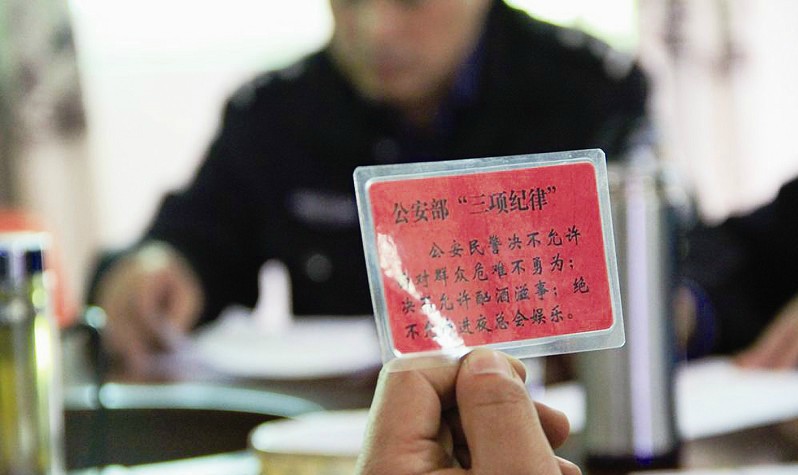 公安部“三项纪律”
公安民警决不允许
对群众危难不勇为；
决不允许酗酒滋事；绝
不允许进夜总会娱乐。